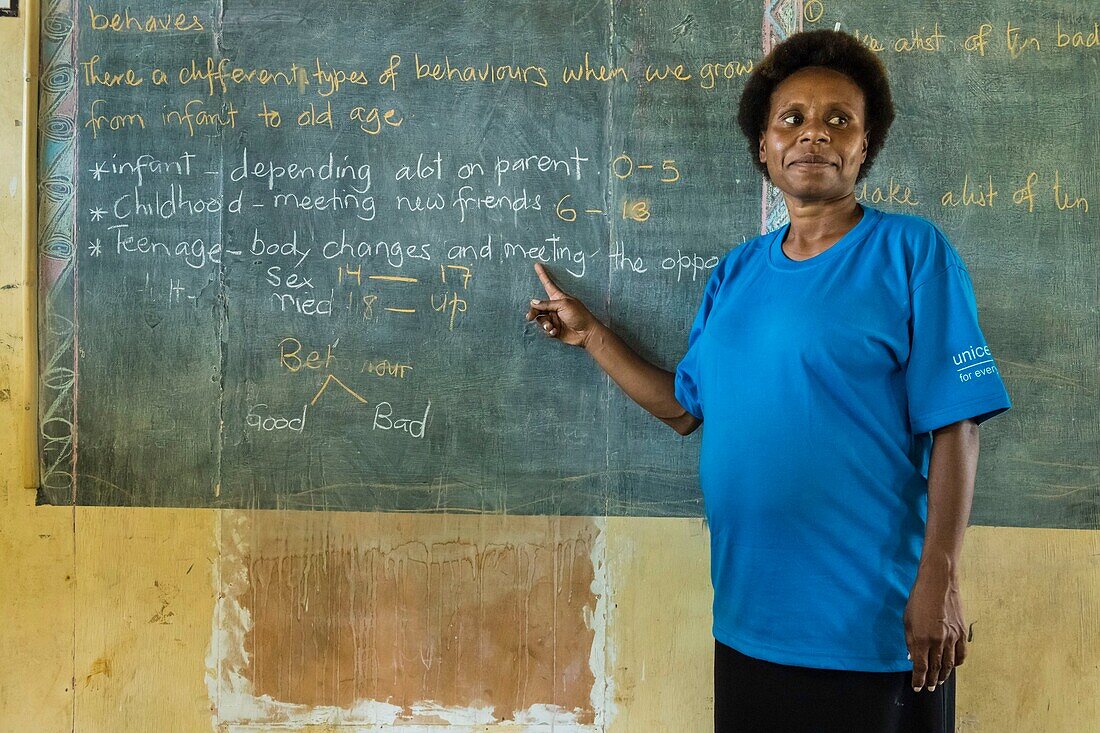 behaves
There a different types of behaviours when we grow
from infant to old age
* infant - depending alot on parent. 0 - 5
* Childhood - meeting new friends 6 - 13
* Teenage - body changes and meeting the oppo
Sex 14 - 17
18 - up
Good Bad
①
alist of Ten bad
Make alist of Ten
unice
for every